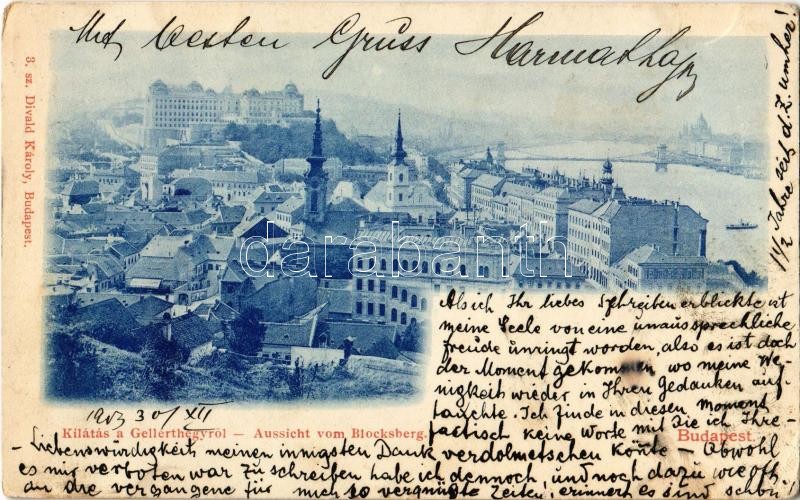 Mit besten Gruss Harmathajos
3. sz. Divald Károly, Budapest.
darabanth.com
Als ich Ihr liebes Schreiben erblickte ist
meine Seele von eine unaussprechliche
freude umringt worden, also es ist doch
der Moment gekommen wo meine We-
nigkeit wieder in Ihren Gedanken auf-
tauchte. Ich finde in diesen Moment
factisch keine Worte mit Die ich Ihre
1903 30/XII
Kilátás a Gellérthegyről — Aussicht vom Blocksberg.
Budapest.
- Liebenswürdigkeit meinen innigsten Dank verdolmetschen könte - Obwohl
es mir verboten war zu schreiben habe ich dennoch, und noch dazu wie oft
an die vergangene für mich so vergnügte Zeiten, erinnern es sind schon
1 1/2 Jahre seit d. Z. umher!